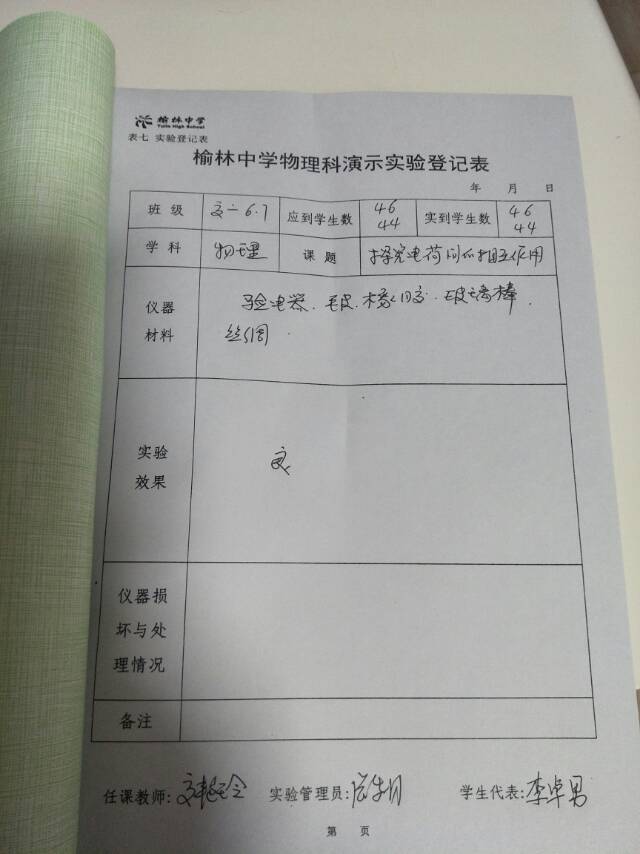 榆林中学
Yulin High School
表七 实验登记表
榆林中学物理科演示实验登记表
年 月 日
班 级 6.7 应到学生数 46 44 实到学生数 46 44
学 科 物理 课 题 探究电荷间的相互作用
仪器材料 验电器、毛皮、橡胶、玻璃棒、
丝绸
实验效果
仪器损坏与处理情况
备注
任课教师: 实验管理员: 学生代表:李卓男
第 页